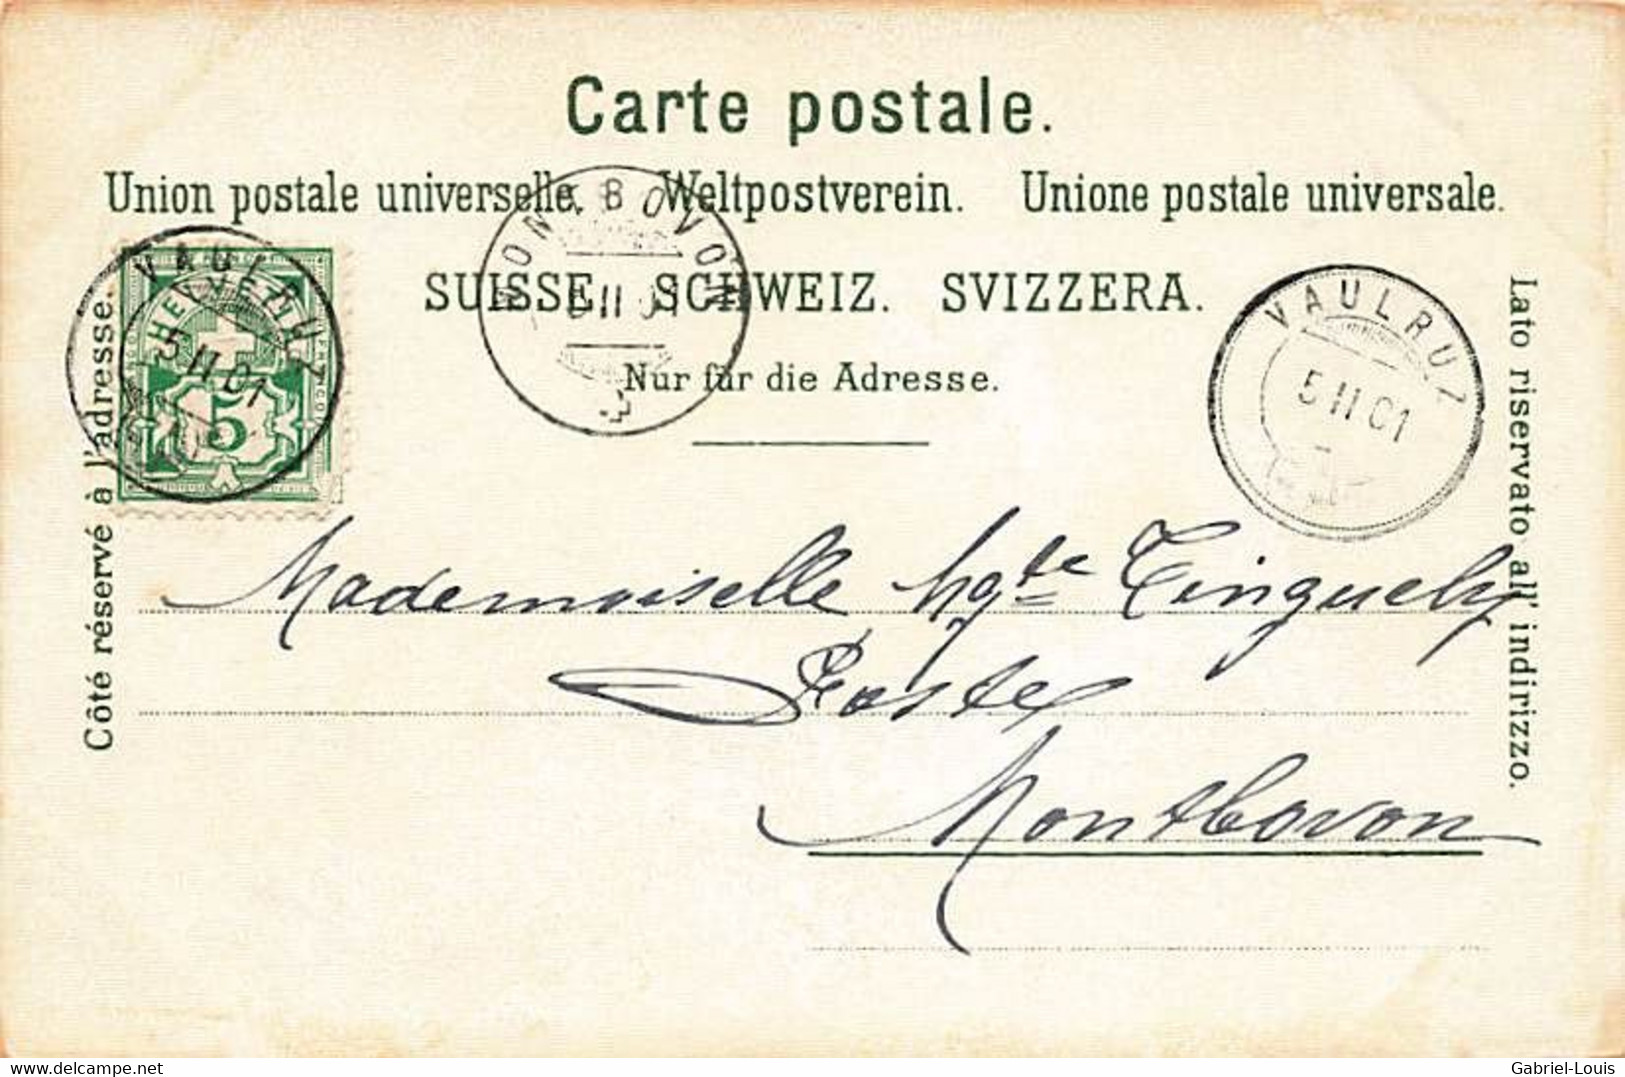 Carte postale.
Union postale universelle. Weltpostverein. Unione postale universale.
SUISSE. SCHWEIZ. SVIZZERA.
Nur für die Adresse.
Côté réservé à l'adresse.
Lato riservato all' indirizzo.
VAULRUZ
5 II 01
HELVETIA
FRANCO
5
MONTBOVON
II 01
VAULRUZ
5 II 01
Mademoiselle Hgte Tinguely
Poste
Montbovon
Gabriel-Louis
delcampe.net